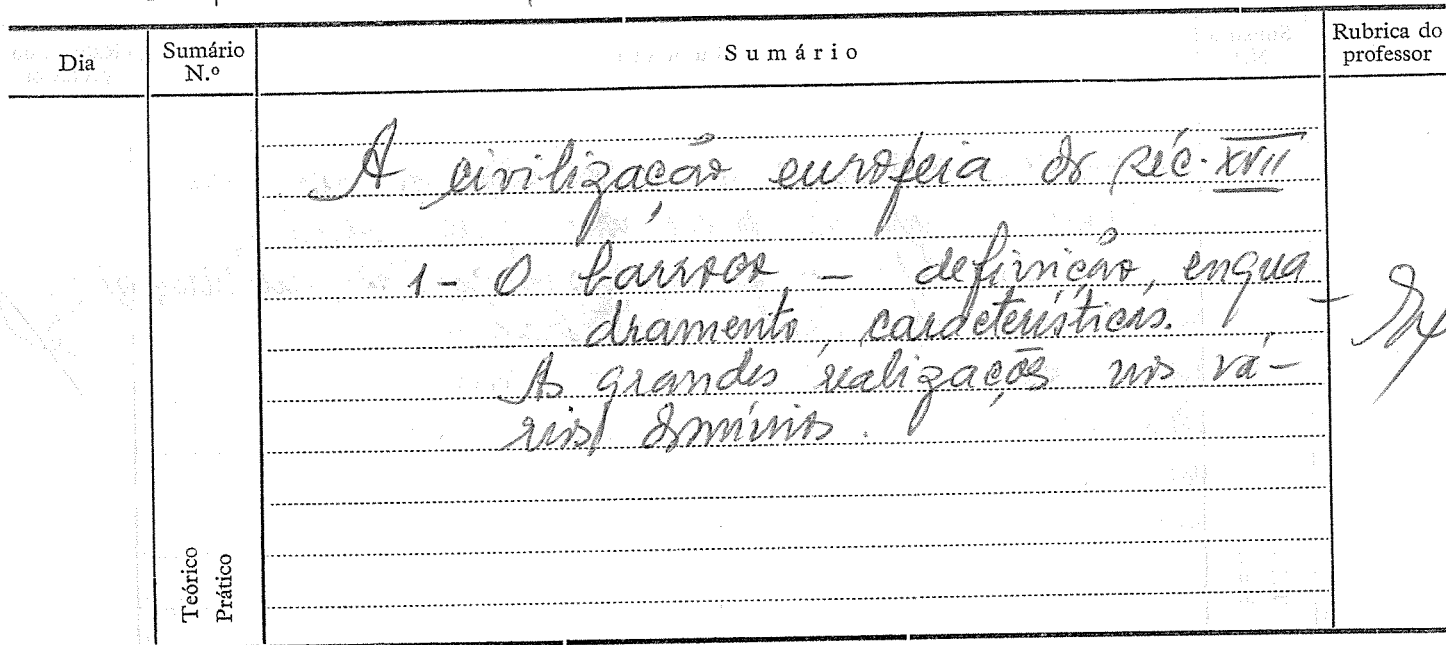 Dia
Sumário N.º
Sumário
Rubrica do professor
A civilização europeia do séc. XVII
1 - O barroco — definição, enqua
dramento, características.
As grandes realizações nos vá-
rios domínios.
Teórico
Prático